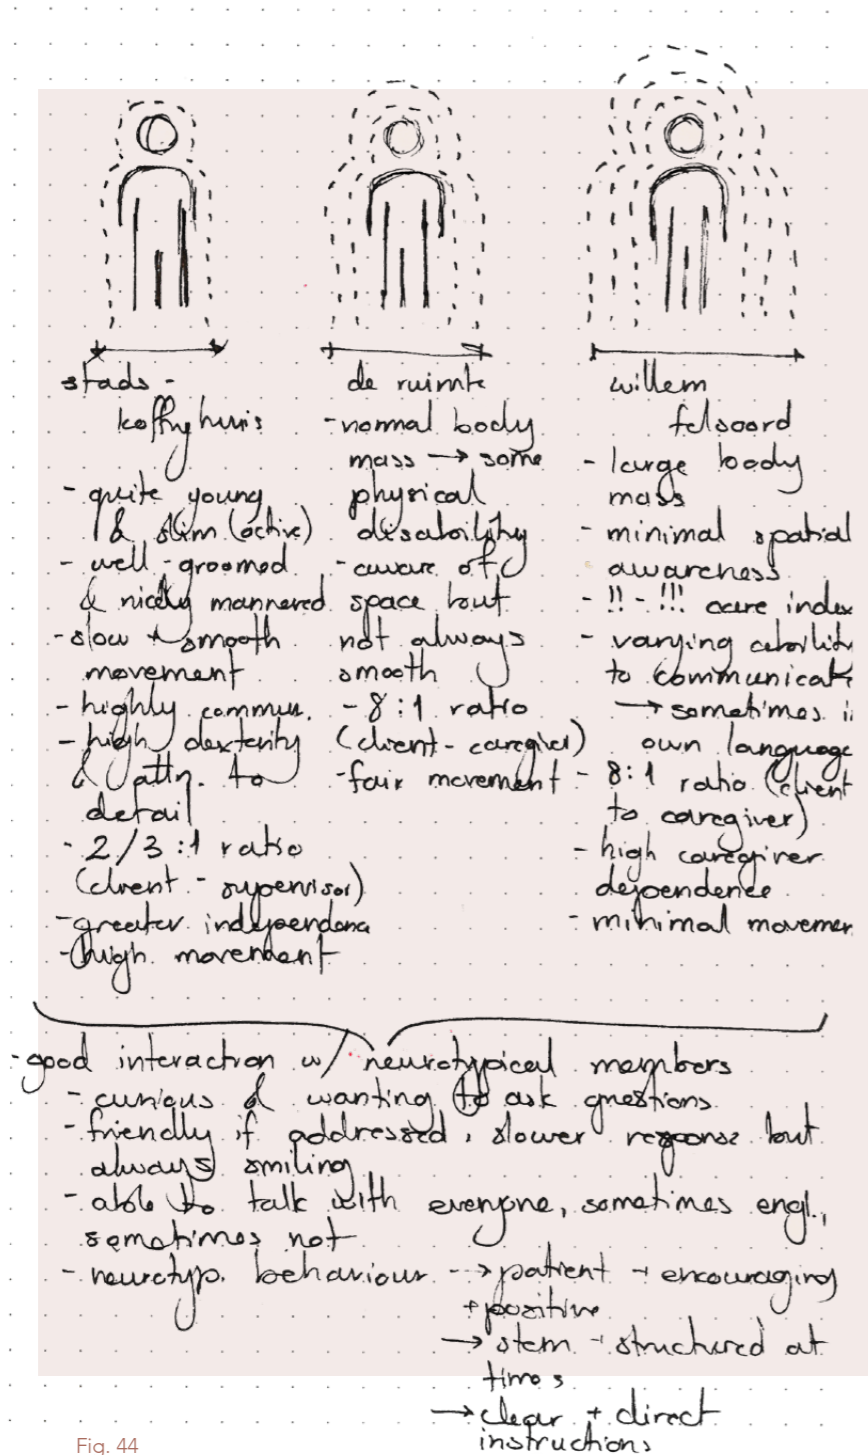 stads-
koffyhuis
- quite young
& slim (active)
- well-groomed
& nicely mannered
- slow + smooth
movement
- highly commun.
- high dexterity
& attn. to
detail
- 2/3:1 ratio
(client - supervisor)
- greater independenc
- high movement
de ruimte
- normal body
mass → some
physical
disability
- aware of
space but
not always
smooth
- 8:1 ratio
(client-caregiver)
- fair movement
willem
felsoord
- large body
mass
- minimal spatial
awareness
- !! - !!! care index
- varying ability
to communicat
→ sometimes i
own language
- 8:1 ratio (client
to caregiver)
- high caregiver
dependence
- minimal movemen
- good interaction w/ neurotypical members
- curious & wanting to ask questions
- friendly if addressed, slower response but
always smiling
- able to talk with everyone, sometimes engl.,
sometimes not
- neurotyp. behaviour --> patient + encouraging
+ positive
→ stern + structured at
times
→ clear + direct
instructions
Fig. 44